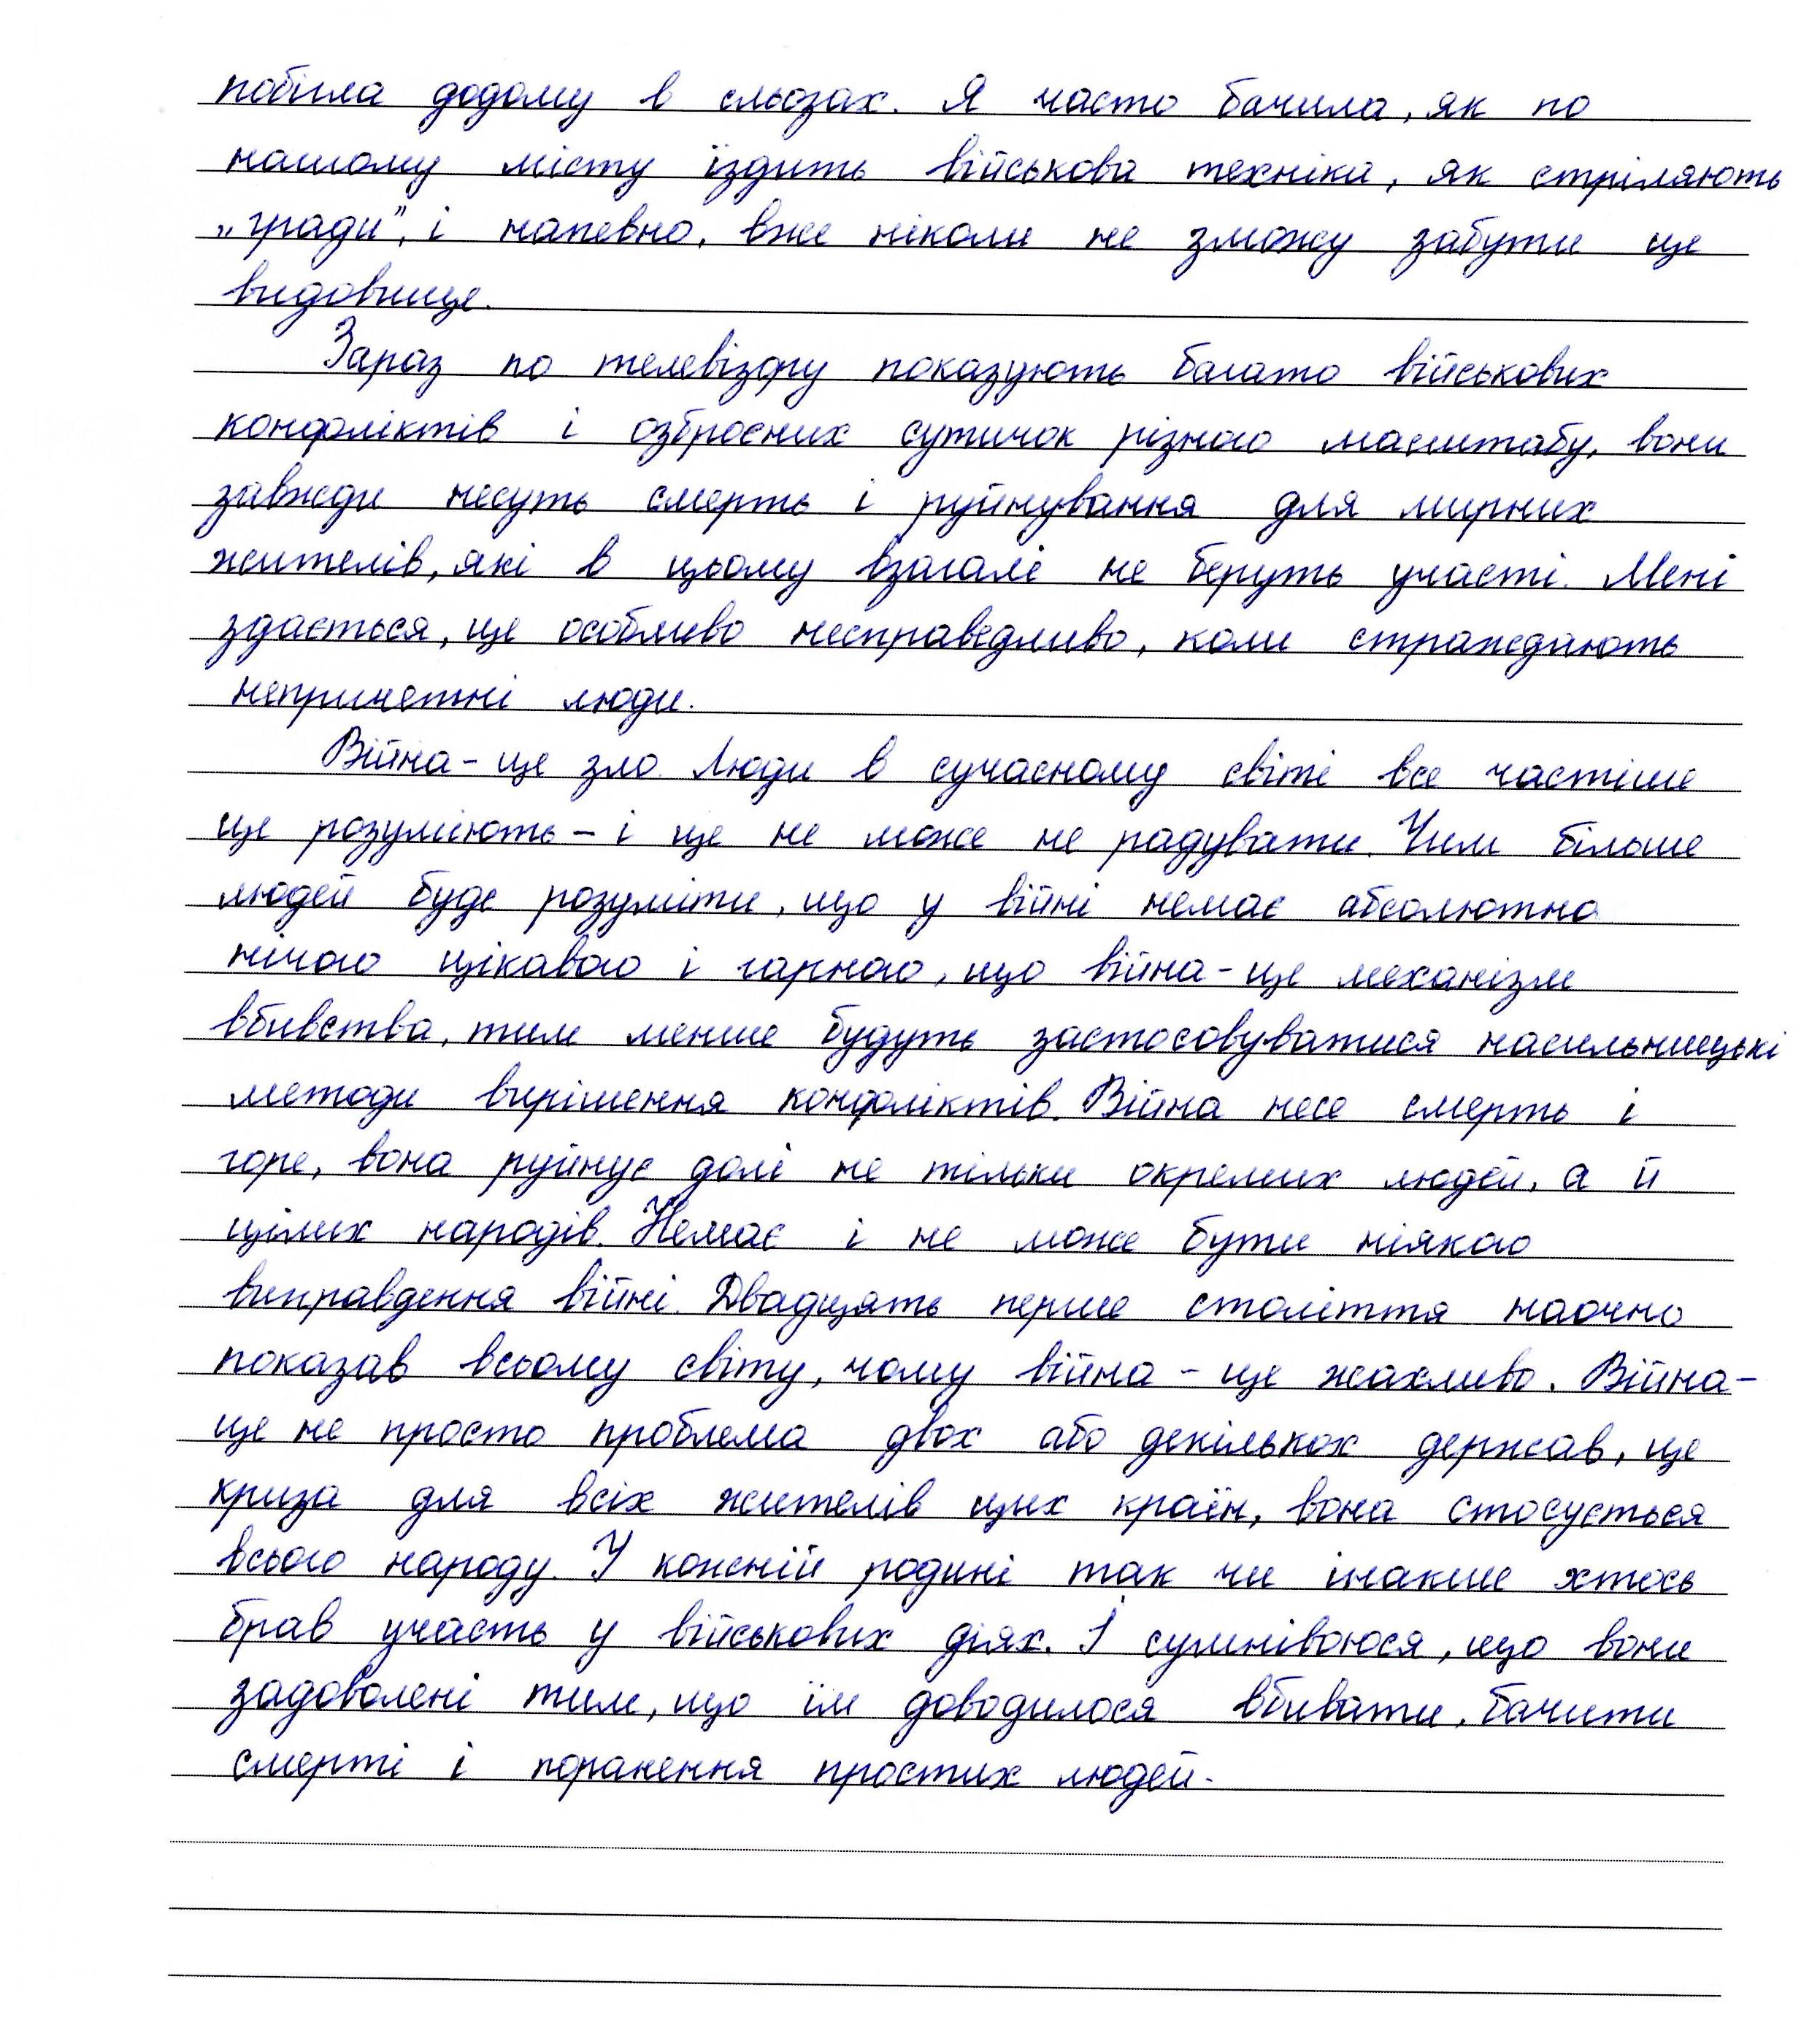 побігла додому в сльозах. Я часто бачила, як по
нашому місту їздить військова техніка, як стріляють
„гради”, і напевно, вже ніколи не зможу забути це
видовище.
Зараз по телевізору показують багато військових
конфліктів і озброєних сутичок різного масштабу, вони
завжди несуть смерть і руйнування для мирних
жителів, які в цьому взагалі не беруть участі. Мені
здається, це особливо несправедливо, коли страждають
непричетні люди.
Війна - це зло. Люди в сучасному світі все частіше
це розуміють - і це не може не радувати. Чим більше
людей буде розуміти, що у війні немає абсолютно
нічого цікавого і гарного, що війна - це механізм
вбивства, тим менше будуть застосовуватися насильницькі
методи вирішення конфліктів. Війна несе смерть і
горе, вона руйнує долі не тільки окремих людей, а й
цілих народів. Немає і не може бути ніякого
виправдення війні. Двадцять перше століття наочно
показав всьому світу, чому війна - це жахливо. Війна -
це не просто проблема двох або декількох держав, це
криза для всіх жителів цих країн, вона стосується
всього народу. У кожній родині так чи інакше хтось
брав участь у військових діях. І сумніваюся, що вони
задоволені тим, що їм доводилося вбивати, бачити
смерті і поранення простих людей.